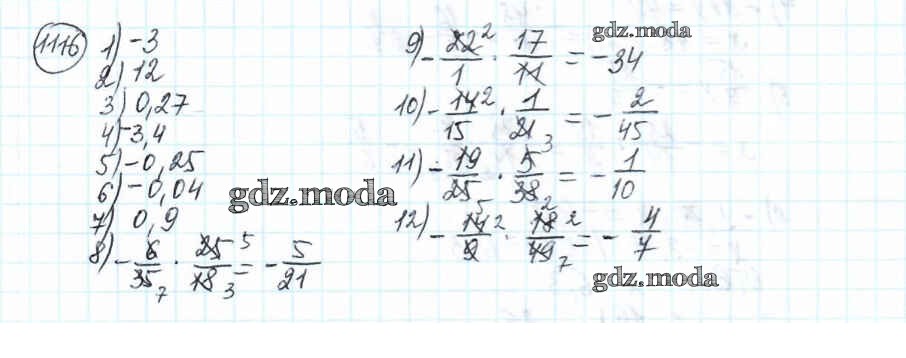 1116
1) -3
2) 12
3) 0,27
4) -3,4
5) -0,25
6) -0,04
7) 0,9
8) - 6/35 7 · 25/18 5 3 = - 5/21
9) - 22/1 2 · 17/11 = -34
10) - 14/15 2 · 1/21 3 = - 2/45
11) - 19/25 5 · 5/38 2 = - 1/10
12) - 14/9 2 · 18/49 2 7 = - 4/7
gdz.moda
gdz.moda
gdz.moda